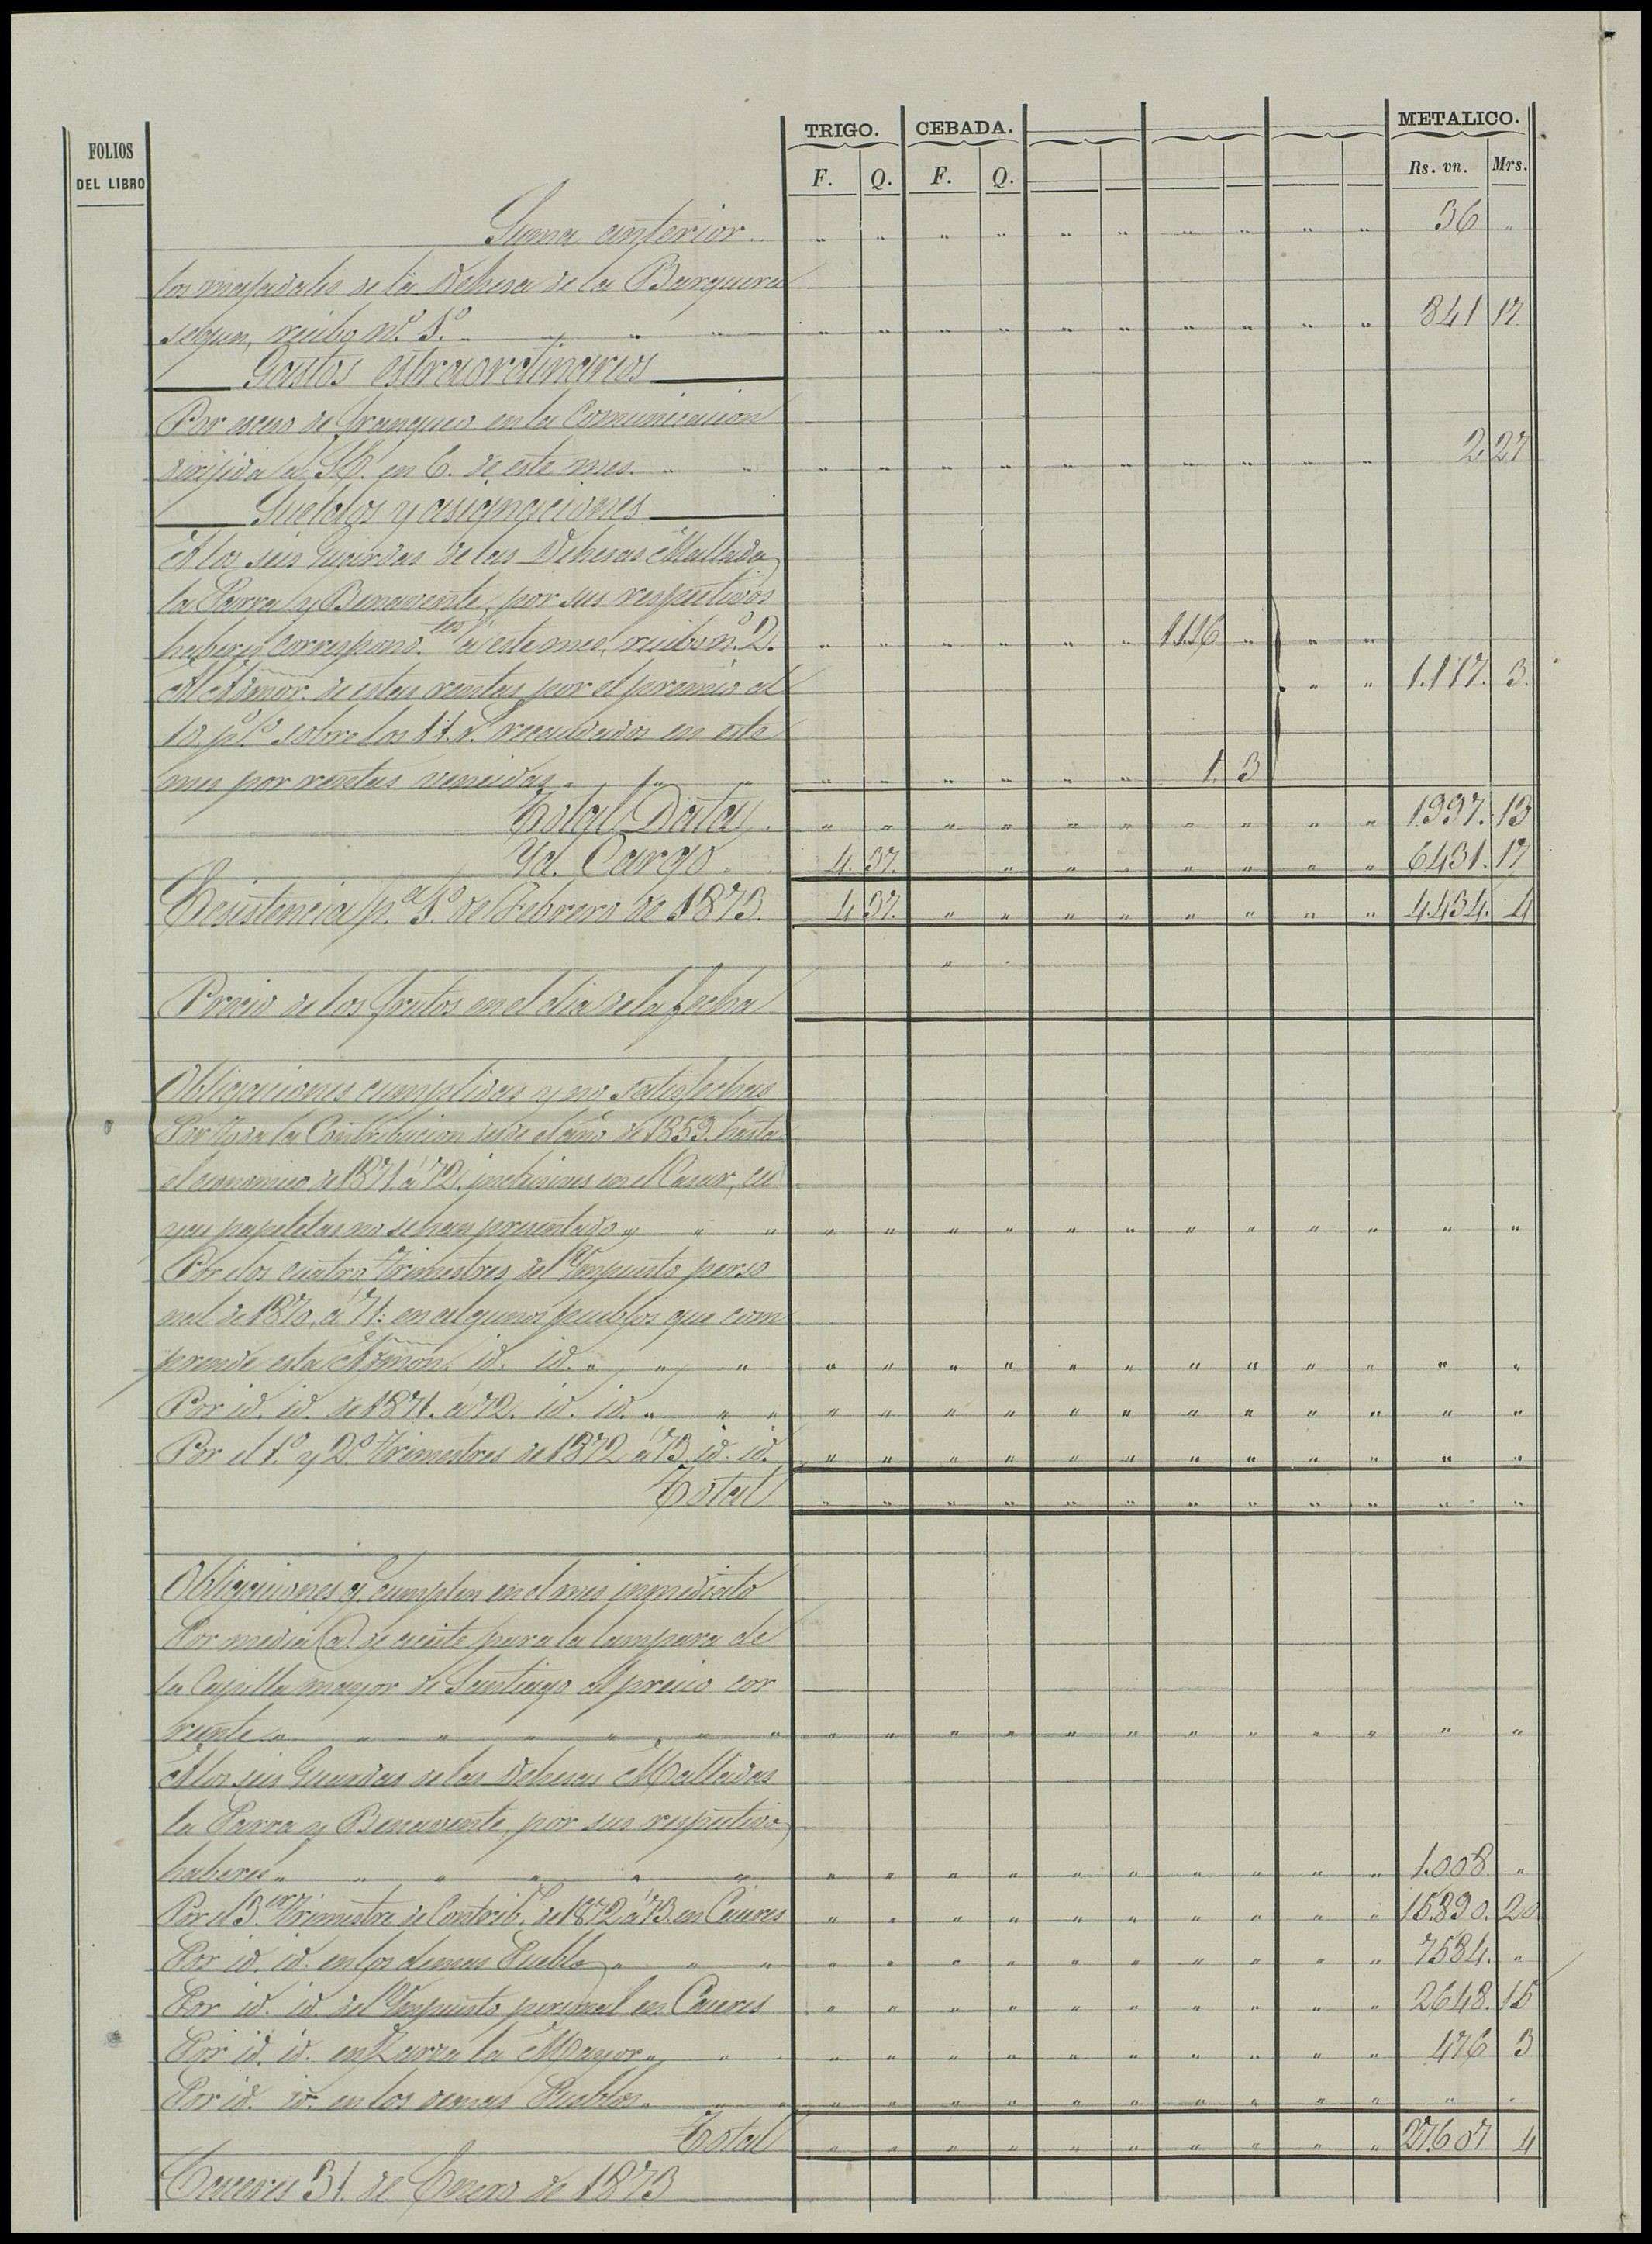 TRIGO. CEBADA. METALICO.
FOLIOS DEL LIBRO F. Q. F. Q. Rs. vn. Mrs.
Suma anterior 36 "
los majadales de la Dehesa de la Barquera
segun, recibo nº 1º 841 17
Gastos estraordinarios
Por esceso de franqueo en la Comunicacion
dirijida á S.E. en 6. de este mes. 2 27
Sueldos y asignaciones
A los seis Guardas de las Dehesas Mallada
la Parra y Benavente, por sus respectivos
haberes correspond.tes á este mes, recibo nº 2. 1.116 "
Al Admor. de estas rentas por el premio al 1.117. 3.
10. pº/º sobre los 11. r.s recaudados en este
mes por rentas vencidas 1. 3
Total Data 1997. 13
Yd. Cargo 4. 37. 6431. 17
Existencia p.a el 1º de Febrero de 1873. 4 37. 4.434. 4
Precio de los frutos en el dia de la fecha
Obligaciones cumplidas y no satisfechas
Por toda la Contribucion desde el año de 1853. hasta
el economico de 1871. á 72. inclusives en el Casar, cu
yas papeletas no se han presentado
Por los cuatro trimestres del Ympuesto perso
nal de 1870, á 71: en algunos pueblos que com
prende esta Admon. id. id.
Por id. id. de 1871. á 72. id. id.
Por el 1.º y 2.º trimestres de 1872 á 73. id. id.
Total
Obligaciones q.e cumplen en el mes inmediato
Por media @. de aceite para la lampara de
la Capilla mayor de Santiago al precio cor
riente
A los seis Guardas de las Dehesas Malladas
la Parra y Benavente, por sus respectivos
haberes 1.008. "
Por el 3.er trimestre de Contrib.n de 1872 á 73. en Cáceres 15.890. 20
Por id. id. en los demas Pueblos 7584. "
Por id. id. del Ympuesto personal en Cáceres 2648. 15
Por id. id. en Zarza la Mayor 476 3
Por id. id. en los demas Pueblos
Total 27.607 4
Caceres 31. de Enero de 1873